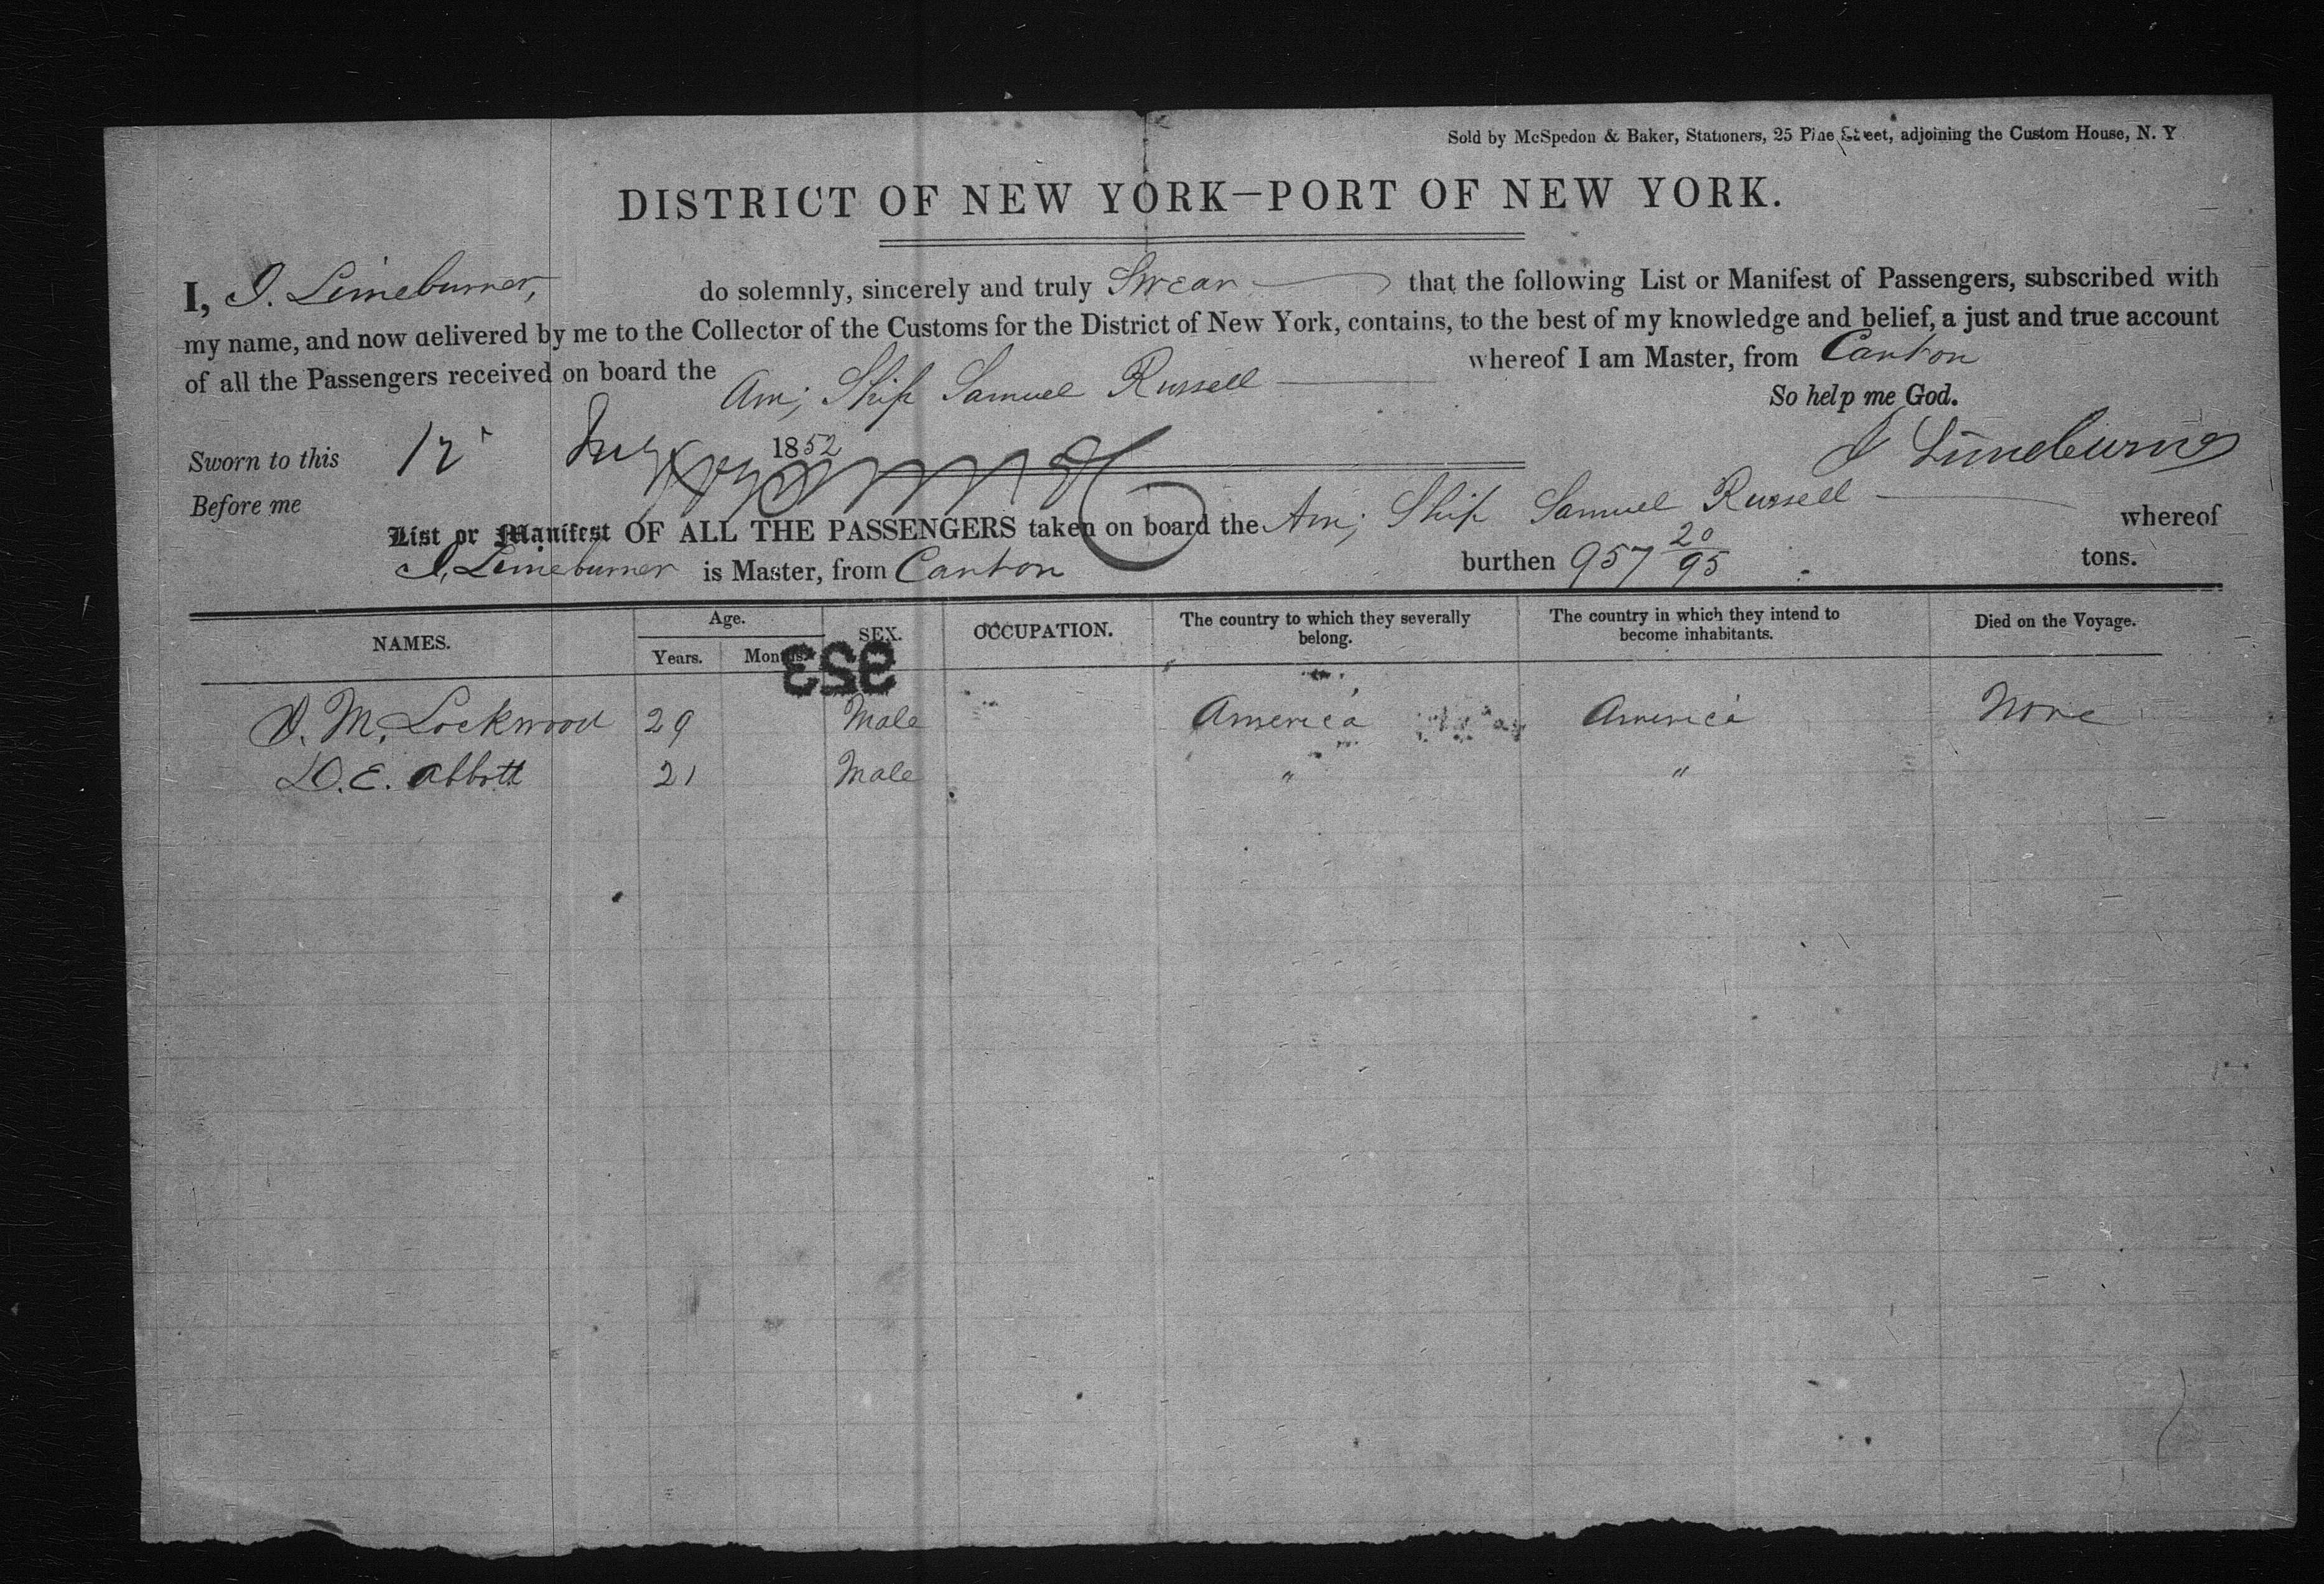 Sold by McSpedon & Baker, Stationers, 25 Pine Street, adjoining the Custom House, N. Y
DISTRICT OF NEW YORK—PORT OF NEW YORK.
I, I. Limeburner, do solemnly, sincerely and truly Swear that the following List or Manifest of Passengers, subscribed with
my name, and now delivered by me to the Collector of the Customs for the District of New York, contains, to the best of my knowledge and belief, a just and true account
of all the Passengers received on board the Am; Ship Samuel Russell whereof I am Master, from Canton
So help me God.
Sworn to this 12 July 1852 I Limeburner
Before me
List or Manifest OF ALL THE PASSENGERS taken on board the Am; Ship Samuel Russell whereof
I, Limeburner is Master, from Canton burthen 957 20/95 tons.
NAMES. Age. Years. Months. SEX. OCCUPATION. The country to which they severally belong. The country in which they intend to become inhabitants. Died on the Voyage.
353
M. Lockwood 29 Male America America None
D. E. Abbott 21 Male " "